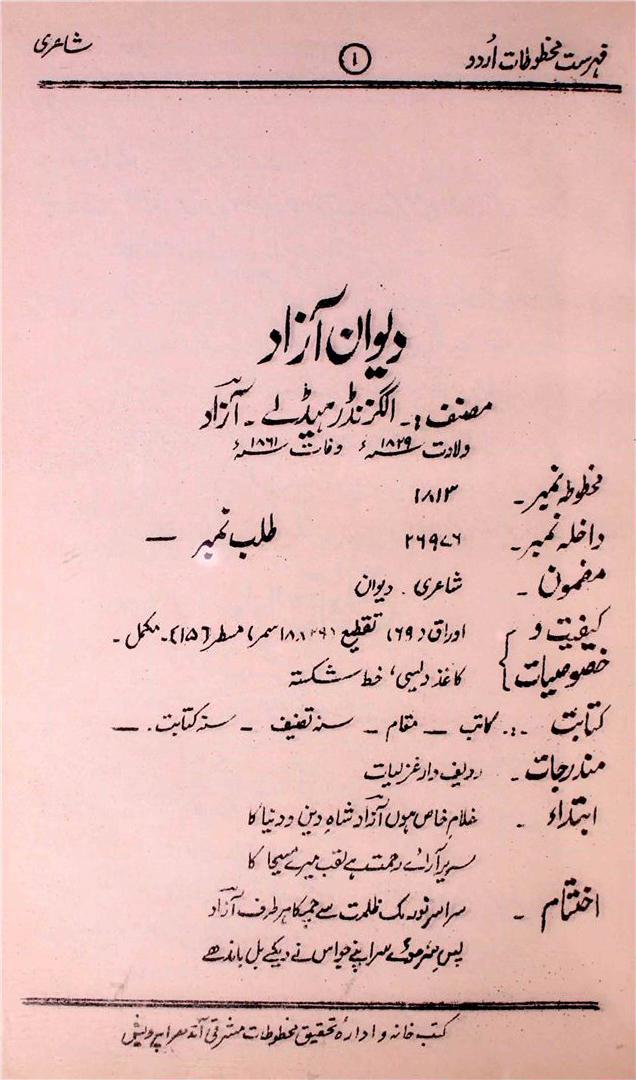 فہرست مخطوطات اُردو ۱ شاعری
دیوان آزاد
مصنف :۔ الگزنڈر ہیڈلے ۔ آزاد
ولادت ۱۸۲۹ سنہء وفات ۱۸۶۱ سنہء
مخطوطہ نمبر ۔ ۱۸۱۳
داخلہ نمبر ۔ ۲۶۹۷۶ طلب نمبر —
مضمون ۔ شاعری . دیوان
کیفیت و اوراق (۶۹) تقطیع سمر) مسطر (۱۵)۔ مکمل ۔
خصوصیات کاغذ دیسی، خط شکستہ
کتابت ۔: کاتب — مقام — سنہ تصنیف — سنہ کتابت. —
مندرجات ۔ ردیف دار غزلیات
ابتداء ۔ غلامِ خاص ہوں آزاد شاہِ دین و دنیا کا
سریر آرائے رحمت ہے لقب میرے مسیحا کا
اختتام ۔ سراسر نور مک ظلمت سے چمکا ہر طرف آزاد
پس سر موئے سر اپنے جو اس نے دیکے بل باندھے
کتب خانہ و ادارۂ تحقیق مخطوطات مشرقی آندھرا پردیش